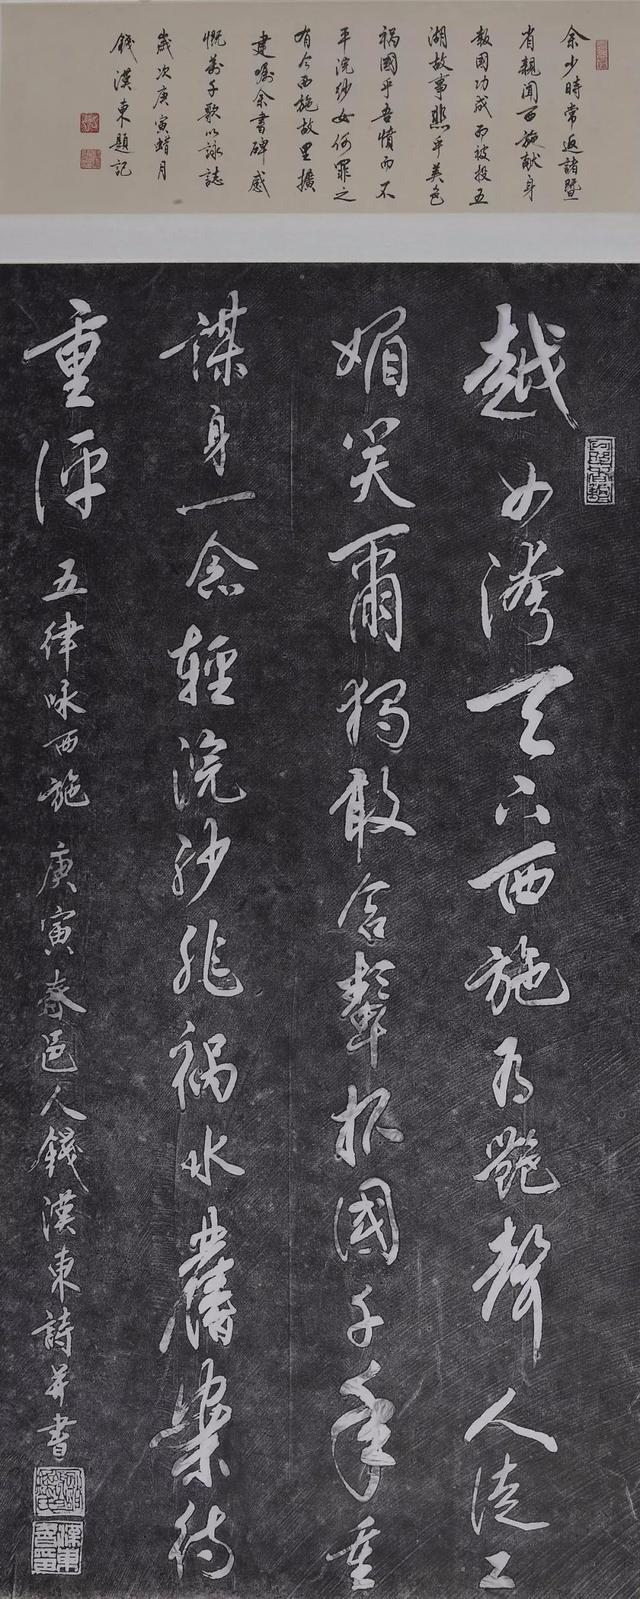 余少時常返諸暨
省親聞西施献身
報國功成而被投五
湖故事悲乎美色
祸國乎吾憤而不
平浣纱女何罪之
有今西施故里擴
建囑余書碑感
慨萬千歌以詠誌
歲次庚寅蜡月
錢漢東題記
越女誇天下西施为艷聲人徒工
媚笑爾獨敢含颦报國千年重
謀身一念輕浣紗非祸水舊案待
重评 五律咏西施 庚寅春邑人錢漢東詩并書